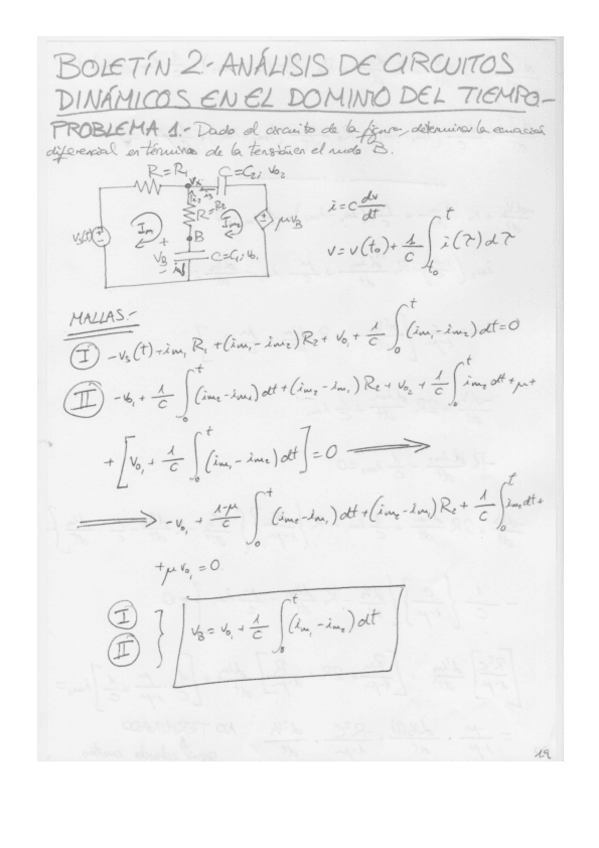 BOLETÍN 2.- ANÁLISIS DE CIRCUITOS
DINÁMICOS EN EL DOMINIO DEL TIEMPO.-
PROBLEMA 1.- Dado el circuito de la figura, determinar la ecuación
diferencial en términos de la tensión en el nudo B.
R=R₁ C=C₂, v₀₂
R=R₂
v_s(t) I_m₁ I_m₂ μv_B
B
v_B C=C₁, v₀₁
i = C dv/dt
v = v(t₀) + 1/C ∫_{t₀}^{t} i(τ) dτ
MALLAS.-
I -v_s(t) + i_m₁ R₁ + (i_m₁ - i_m₂) R₂ + v₀₁ + 1/C ∫₀ᵗ (i_m₁ - i_m₂) dt = 0
II -v₀₁ + 1/C ∫₀ᵗ (i_m₂ - i_m₁) dt + (i_m₂ - i_m₁) R₂ + v₀₂ + 1/C ∫₀ᵗ i_m₂ dt + μ +
+ [v₀₁ + 1/C ∫₀ᵗ (i_m₁ - i_m₂) dt] = 0 ⟹
⟹ -v₀₁ + 1-μ/C ∫₀ᵗ (i_m₂ - i_m₁) dt + (i_m₂ - i_m₁) R₂ + 1/C ∫₀ᵗ i_m₂ dt +
+ μ v₀₁ = 0
I
II } v_B = v₀₁ + 1/C ∫₀ᵗ (i_m₁ - i_m₂) dt